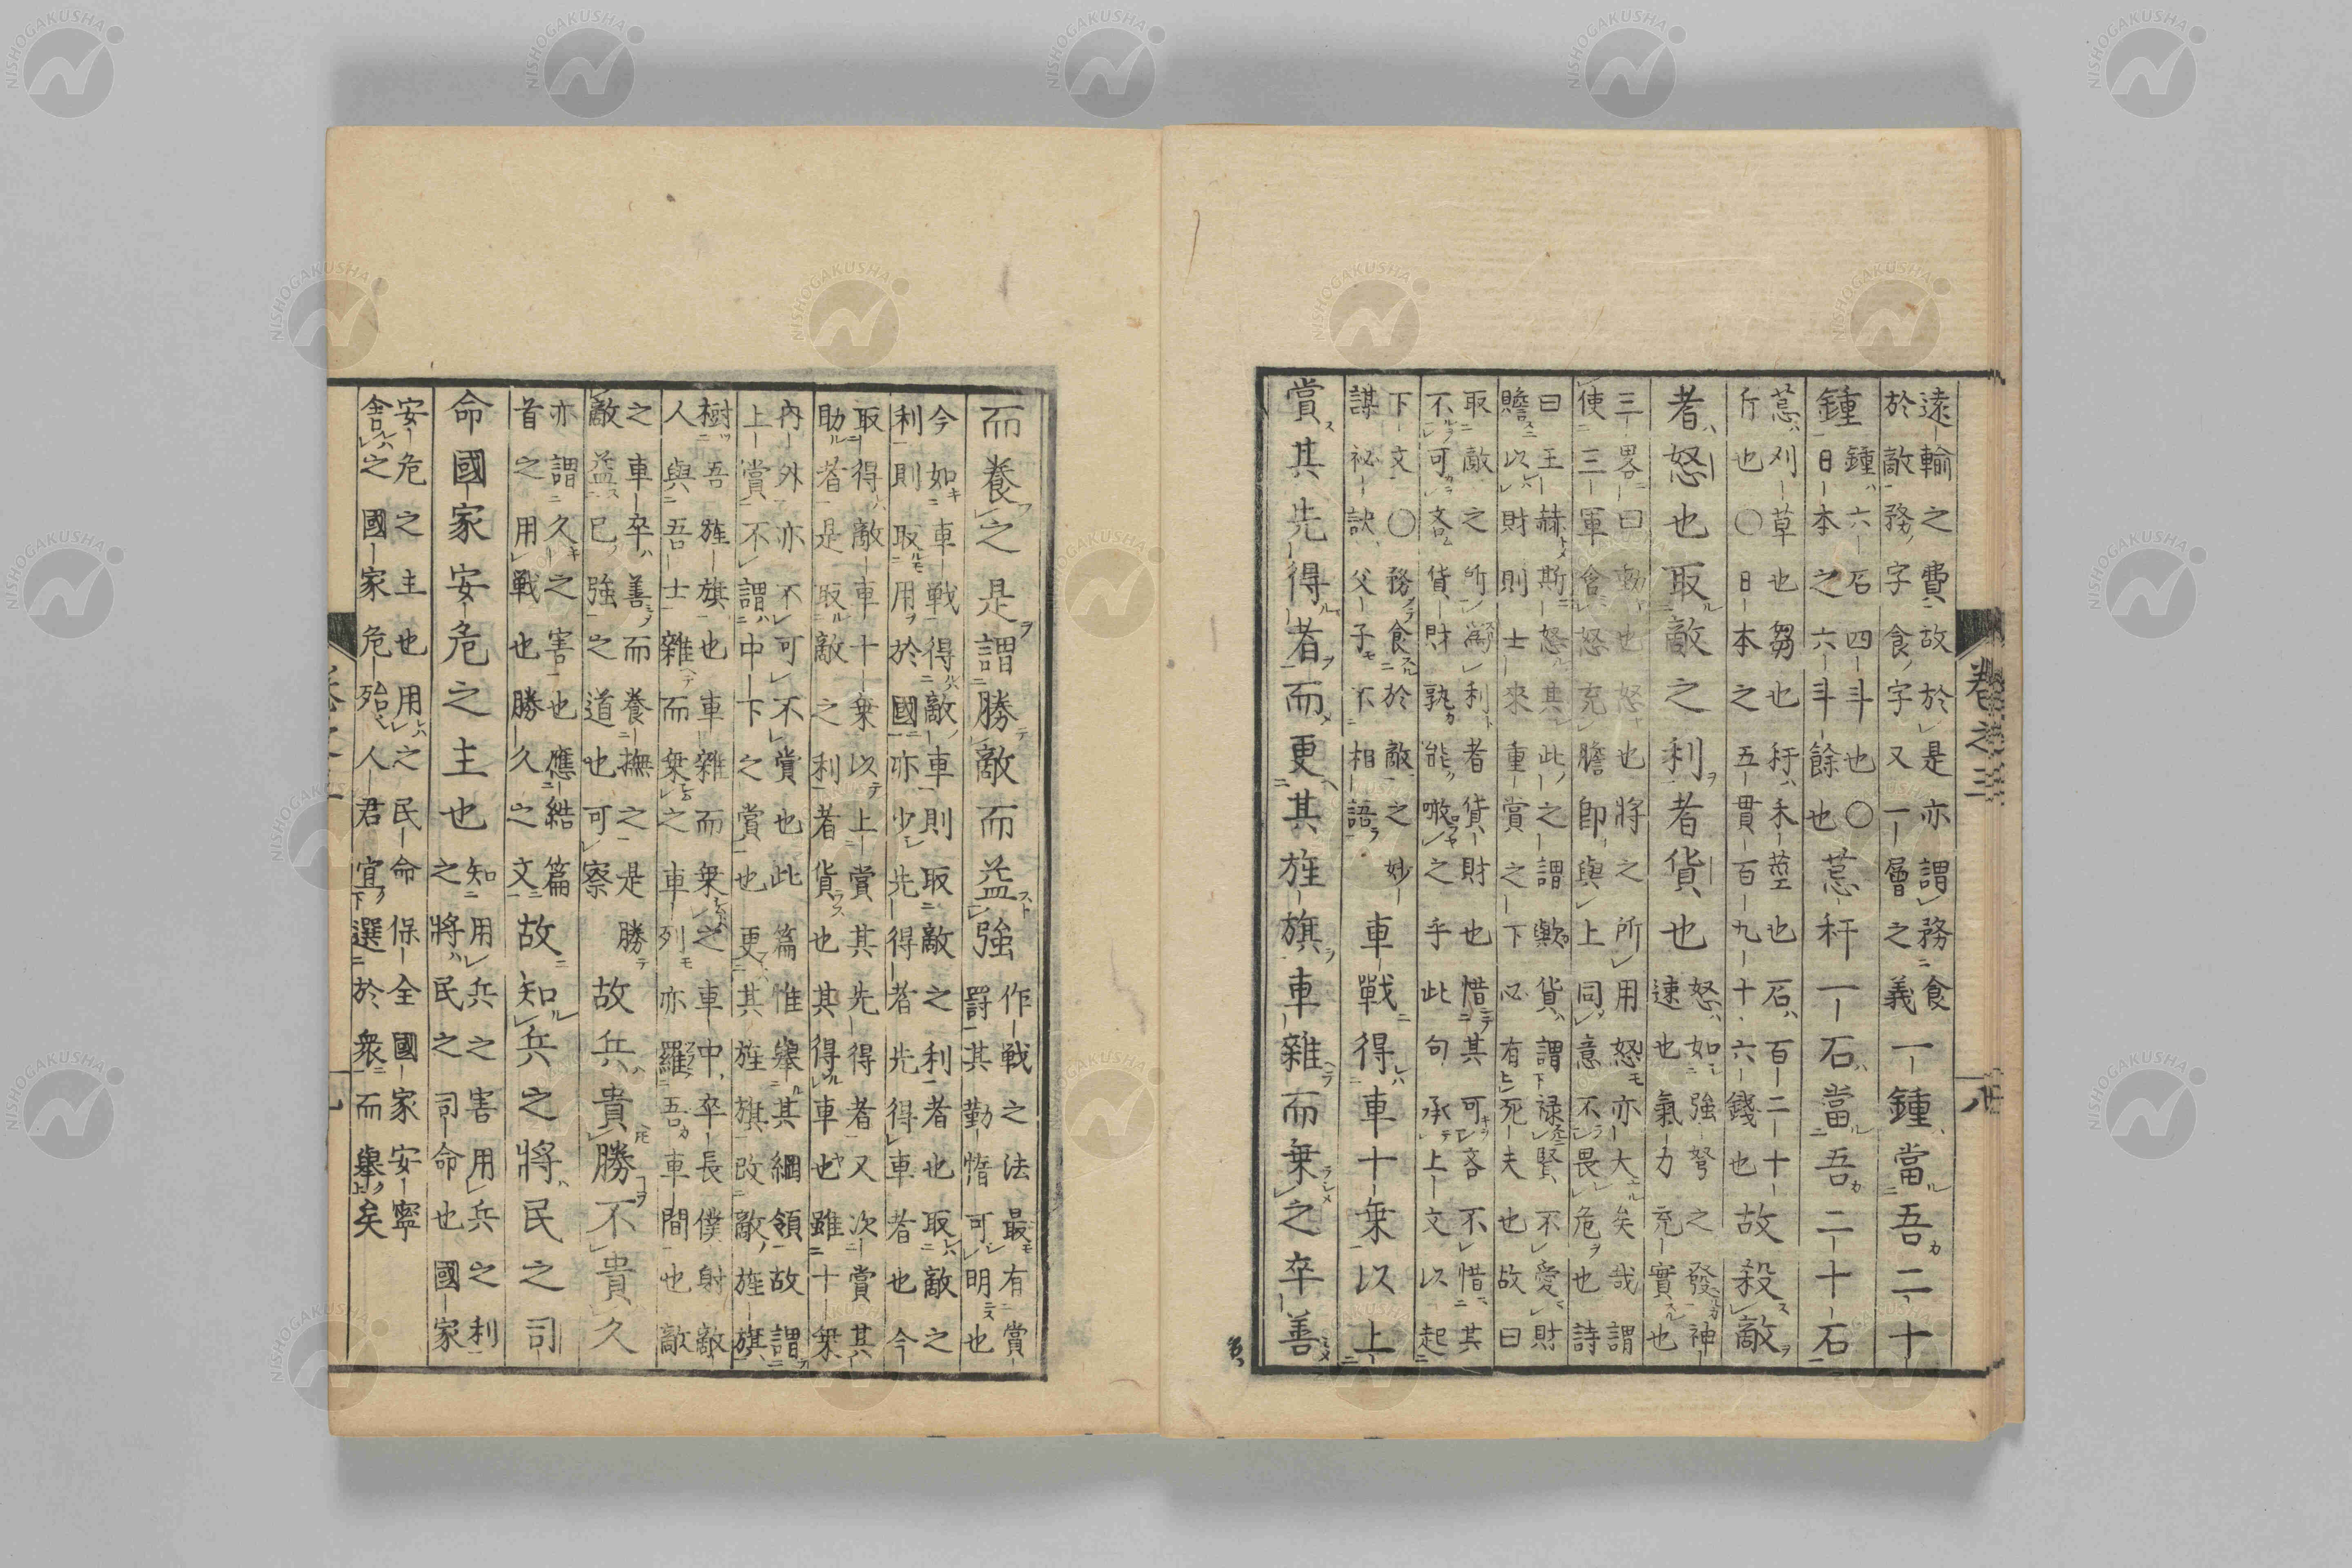 遠輸之費故於是亦謂務食
於敵務字食字又一層之義
一鍾當吾二十
鍾
鍾六石四斗也〇
日本之六斗餘也
秆一石當吾二十石
刈草也芻也秆禾莖也石百二十
斤也〇日本之五貫百九十六錢也
故殺敵
者怒也取敵之利者貨也
怒如強弩之發神
速也氣力充實也
三畧曰動也怒也將之所用怒亦大矣哉謂
使三軍會怒充膽即與上同意不畏危也詩
曰王赫斯怒其此之謂歟貨謂祿賢不愛財
贍以財則士來重賞之下必有死夫也故曰
取敵之所爲利者貨財也惜其可吝不惜其
不可吝貨財孰能噉之乎此句承上文以起
下文〇務食於敵之妙
謀祕訣父子不相語
車戰得車十乗以上
賞其先得者而更其旌旗車雜而乗之卒善
卷之三
八
而養之是謂勝敵而益強
作戰之法最有賞
罸其勤惰可明也
今如車戰得敵車則取敵之利者也取敵之
利則取用於國亦少先得者先得車者也今
取得敵車十乗以上賞其先得者又次賞其
助者是取敵之利者貨也其得車也雖十乗
內外亦不可不賞也此篇惟擧其綱領故謂
上賞不謂中下之賞也更其旌旗改敵旌旗
樹吾旌旗也車雜而乗之車中卒長僕射敵
人與吾士雜而乗之車列亦羅吾車間也敵
之車卒善而養撫之是勝
敵益己強之道也可察
故兵貴勝不貴久
亦謂久之害也應結篇
首之用戰也勝久之文
故知兵之將民之司
命國家安危之主也
知用兵之害用兵之利
之將民之司命也國家
安危之主也用之民命保全國家安寧
舎之國家危殆人君宜選於衆而擧矣